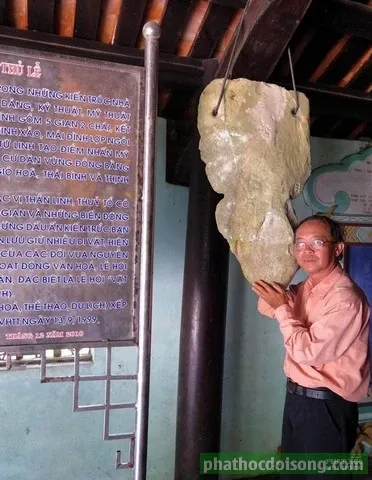 THỦ LỄ
RONG NHỮNG KIẾN TRÚC NHÀ
ĐÁNG, KỸ THUẬT, MỸ THUẬT
GỒM 5 GIAN 2 CHÁI, KẾT
TINH XẢO, MÁI ĐÌNH LỢP NGÓI
TỨ LINH TẠO ĐIỂM NHẤN MỸ
CƯ DÂN VÙNG ĐỒNG BẰNG
GIÓ HÒA, THÁI BÌNH VÀ THỊNH
VỊ THẦN LINH, THỦY TỔ CÓ
GIAN VÀ NHỮNG BIẾN ĐỘNG
DẤU ẤN KIẾN TRÚC BAN
LƯU GIỮ NHIỀU DI VẬT, HIỆN
CỦA CÁC ĐỜI VUA NGUYỄN
ĐỘNG VĂN HÓA, LỄ HỘI
ĐẶC BIỆT LÀ LỄ HỘI "VẬT
HÓA, THỂ THAO, DU LỊCH) XẾP
VHTT NGÀY 13.9.1999.
THÁNG 12 NĂM 2018
phathocdoisong.com